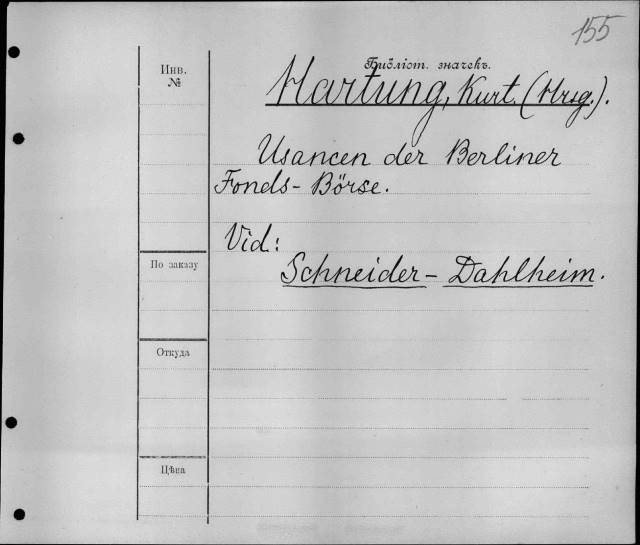 155
Инв.
№
Библіот. значекъ.
Hartung, Kurt. (Hrsg.).
Usancen der Berliner
Fonds-Börse.
Vid:
Schneider-Dahlheim.
По заказу
Откуда
Цѣна